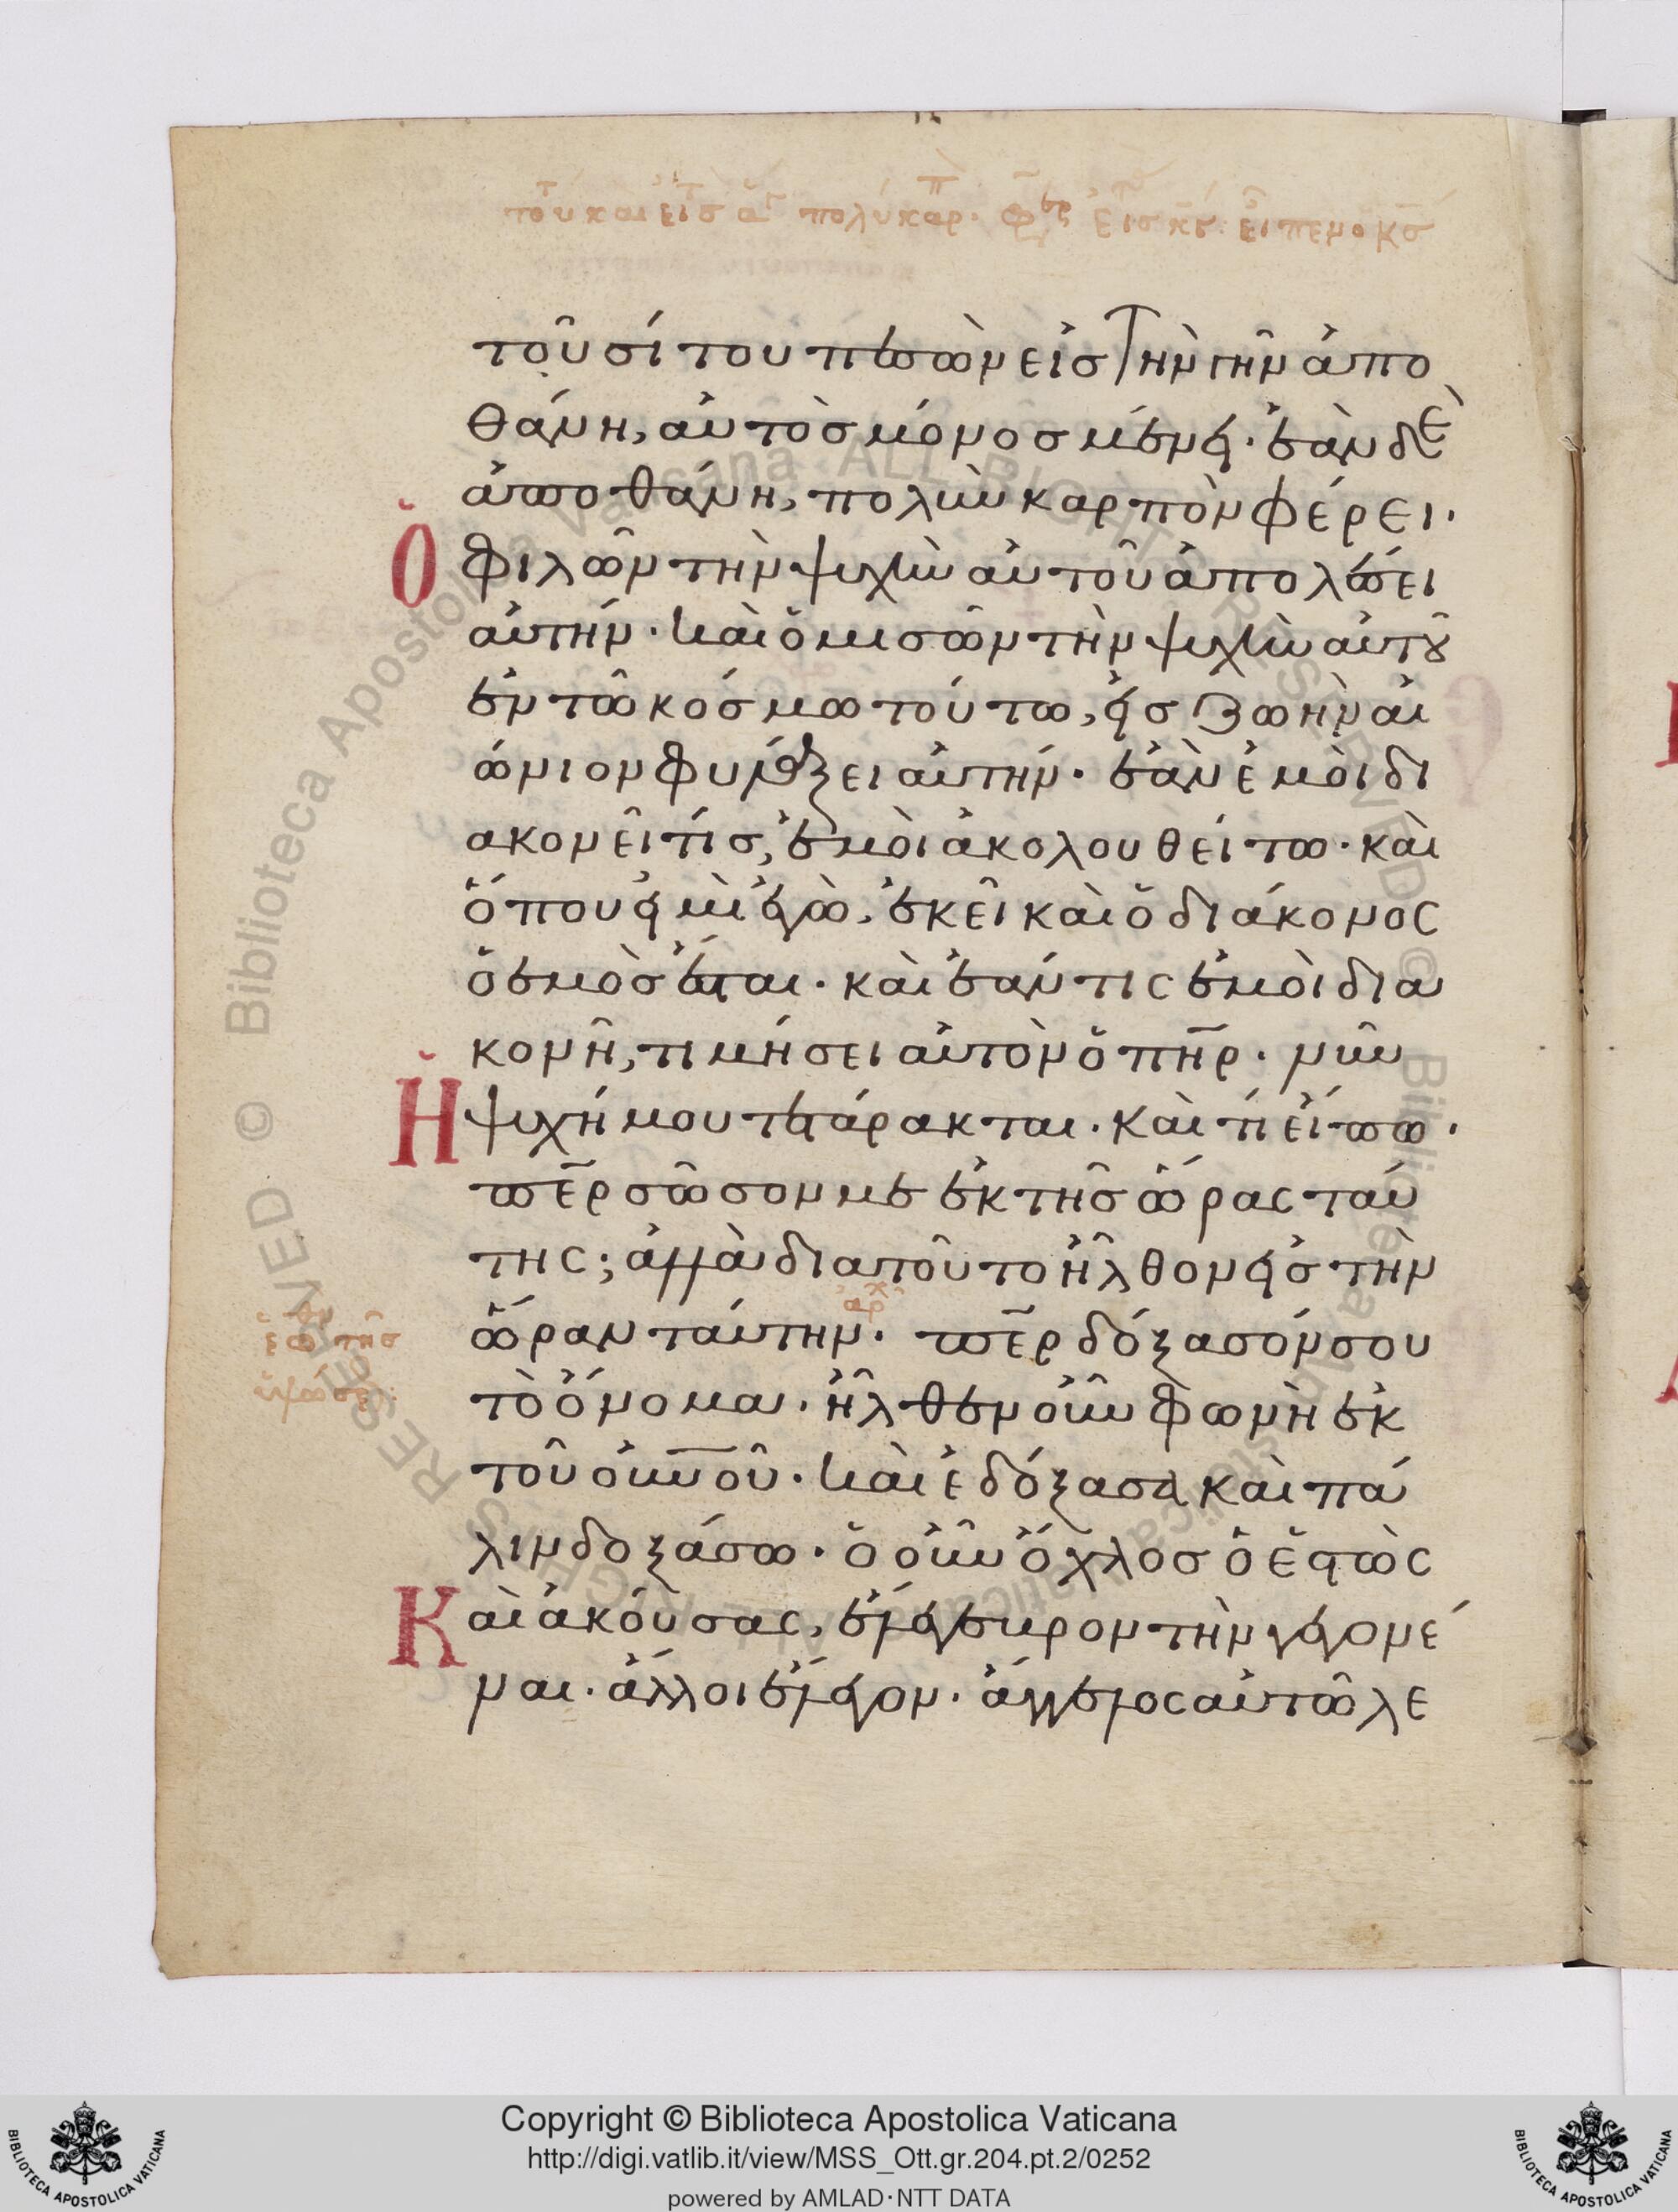 τοῦ σίτου πεσὼν εἰς τὴν γῆν ἀπο
θάνη, αὐτὸσ μόνοσ μένει· ἐὰν δὲ
ἀποθάνη, πολὺν καρπὸν φέρει·
Ὁ φιλῶν τὴν ψυχὴν αὐτοῦ ἀπολέσει
αὐτήν· καὶ ὁ μισῶν τὴν ψυχὴν αὐτοῦ
ἐν τῶ κόσμω τούτω, εἰσ ζωὴν αἰ
ώνιον φυλάξει αὐτήν· ἐὰν ἐμὸι δι
ακονεῖ τίσ, ἐμὸι ἀκολουθείτω· καὶ
ὅπου εἰμὶ ἐγὼ, ἐκεῖ καὶ ὁ διάκονος
ὁ ἐμὸσ ἔσται· καὶ ἐάν τις ἐμὸι δια
κονῆ, τιμήσει αὐτὸν ὁ πῆρ· νῦν
Ἡ ψυχή μου τετάρακται· καὶ τί εἴπω·
πε̄ρ σῶσον με ἐκ τῆσ ὥρας ταύ
της; ἀλλὰ διατοῦτο ἦλθον εἰσ τὴν
ὥραν ταύτην· πε̄ρ δόξασόν σου
τὸ ὄνομα· ἦλθεν οὖν φωνὴ ἐκ
τοῦ οὐνοῦ· καὶ ἐδόξασα καὶ πά
λιν δοξάσω· ὁ οὖν ὄχλοσ ὁ ἑστὼς
Καὶ ἀκούσας, ἔλεγεν βροντὴν γεγονέ
ναι· ἄλλοι ἔλεγον· ἄγγελος αὐτῶ λε
Copyright © Biblioteca Apostolica Vaticana
http://digi.vatlib.it/view/MSS_Ott.gr.204.pt.2/0252
powered by AMLAD·NTT DATA
BIBLIOTECA APOSTOLICA VATICANA
BIBLIOTECA APOSTOLICA VATICANA